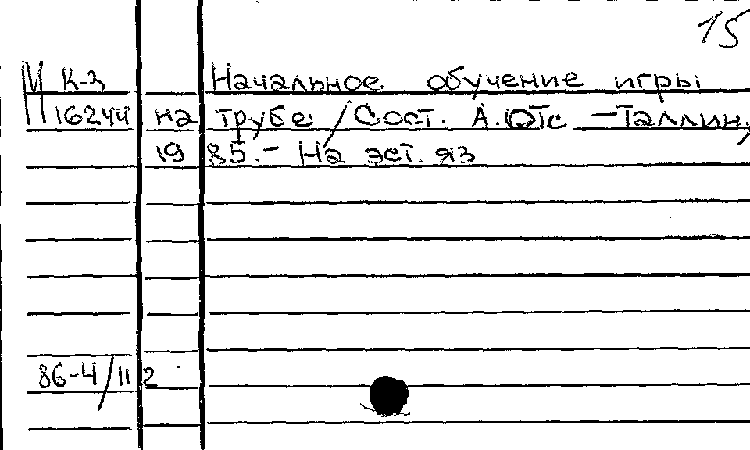 15
М К-з Начальное обучение игры
16244 на трубе / Сост. А. Отс – Таллин,
1985. – На эст. яз
86-4/112